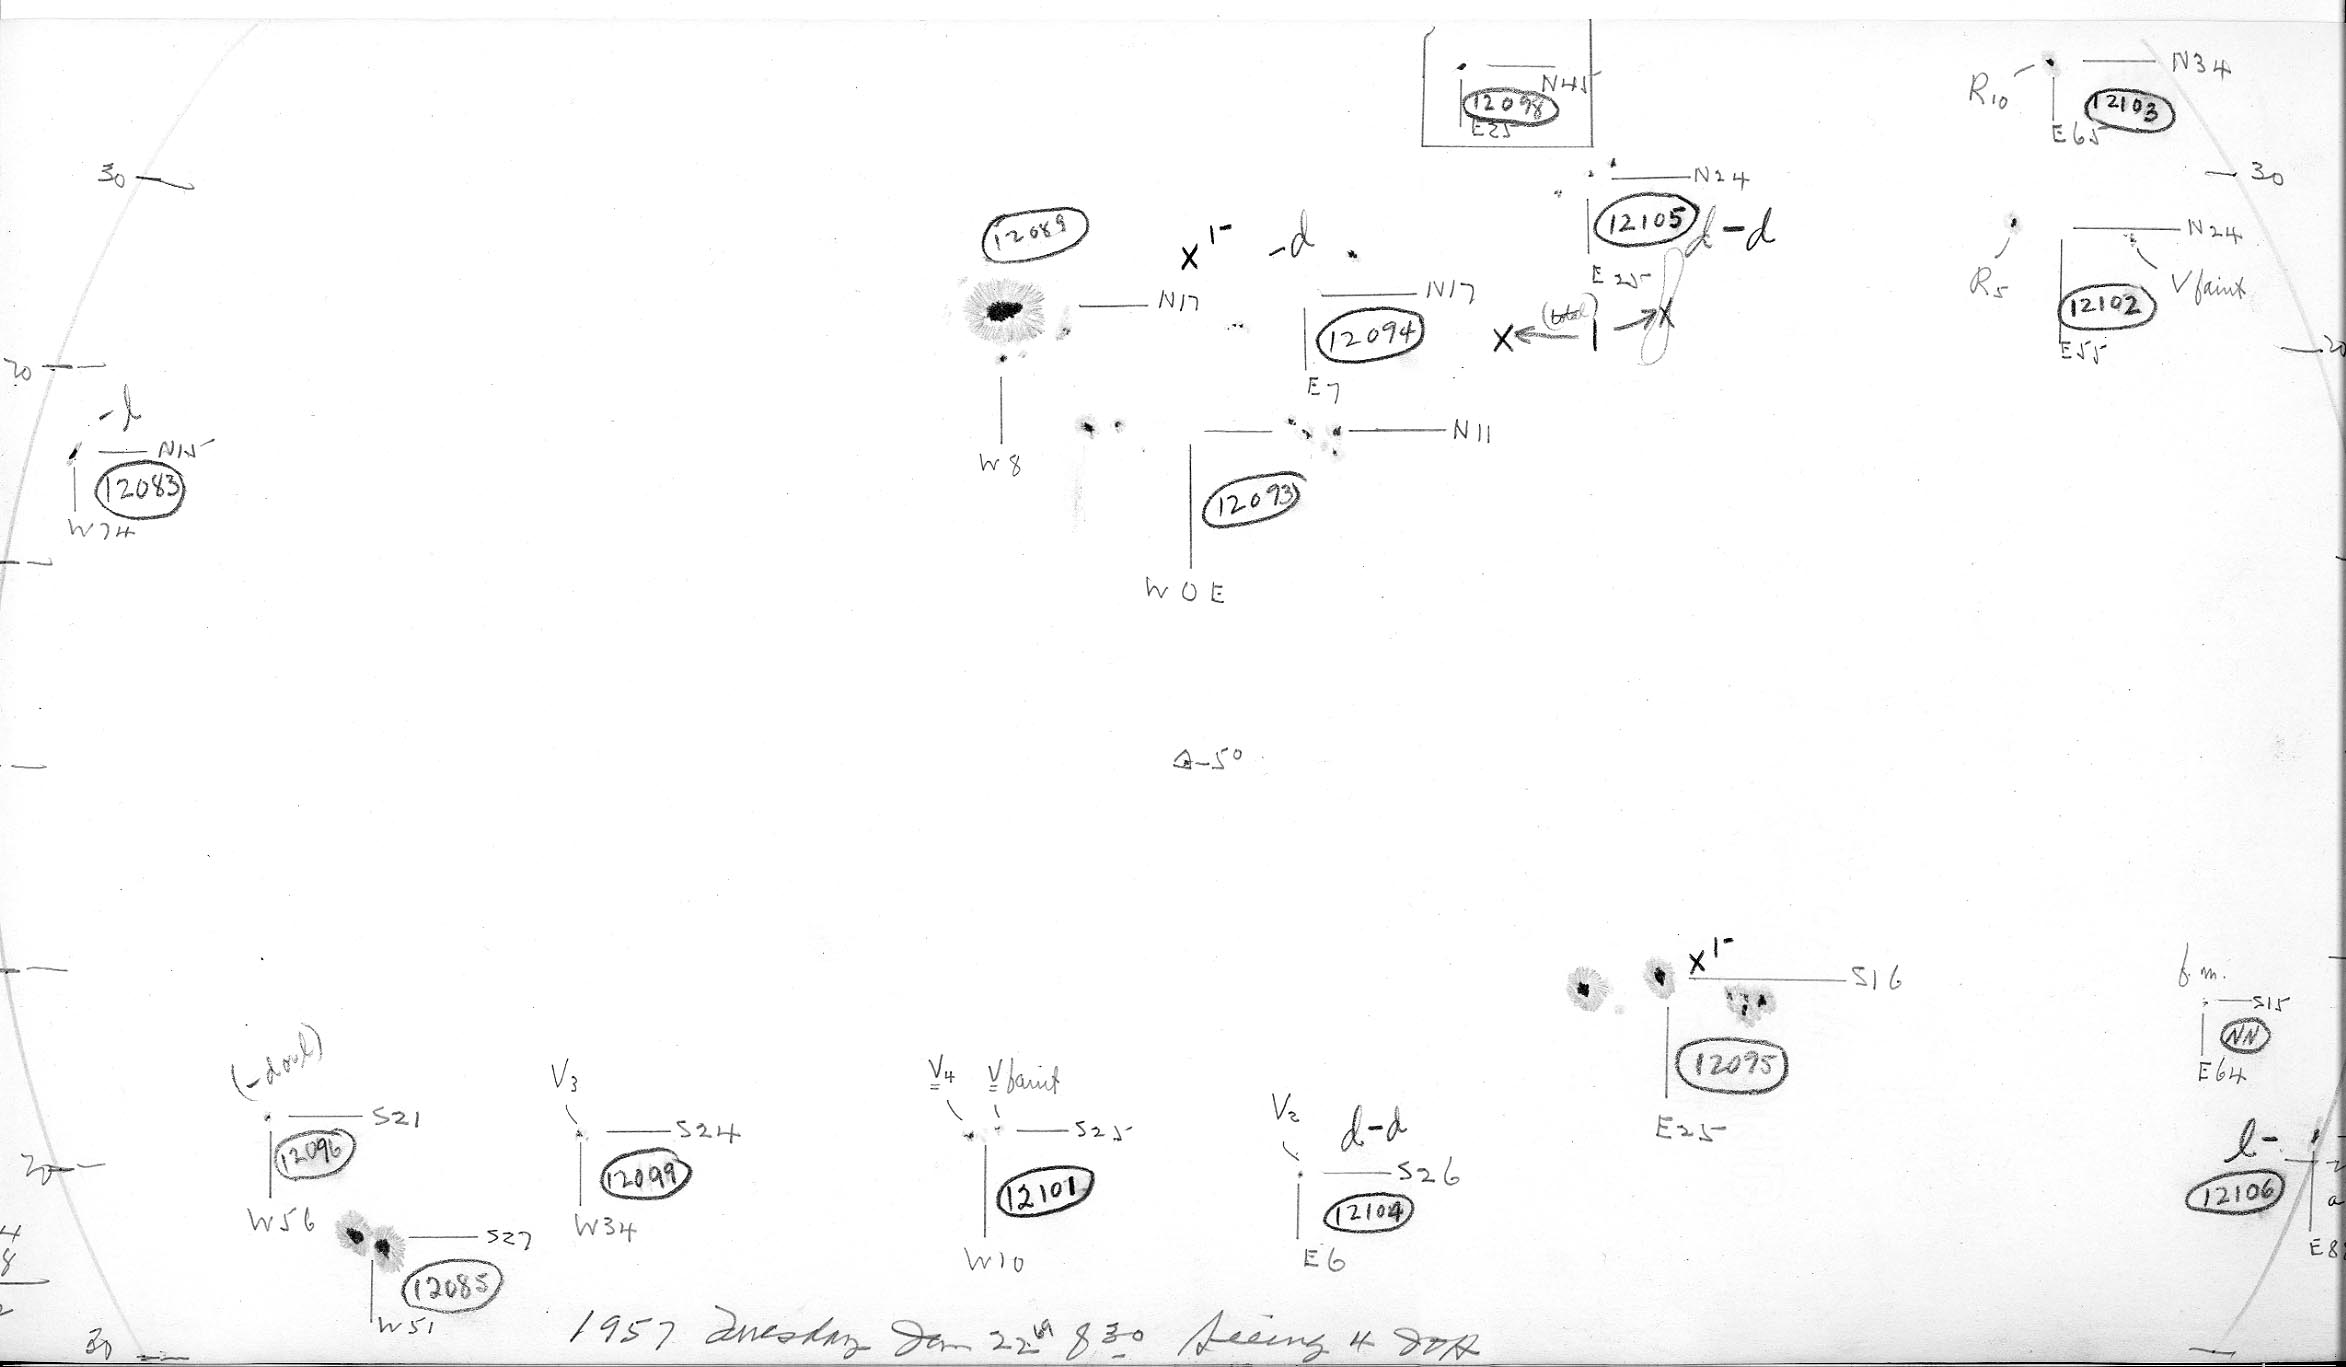 N45
12098
E25
R10
N34
12103
E65
30
30
N24
12105
d-d
E25
12089
x 1-
-d
N17
N17
12094
E7
W8
x ← (total) 1 → x
N24
R5
V faint
12102
E55
20
20
-l
N15
12083
W74
N11
12093
W O E
-5°
x 1-
S16
12095
E25
f m.
S15
NN
E64
l-
12106
E8
S21
12096
W56
V3
S24
12099
W34
V4
V faint
S25
12101
W10
V2
d-d
S26
12104
E6
20
S27
12085
W51
4
8
30
1957 Tuesday Jan 22nd 8 30 Seeing 4